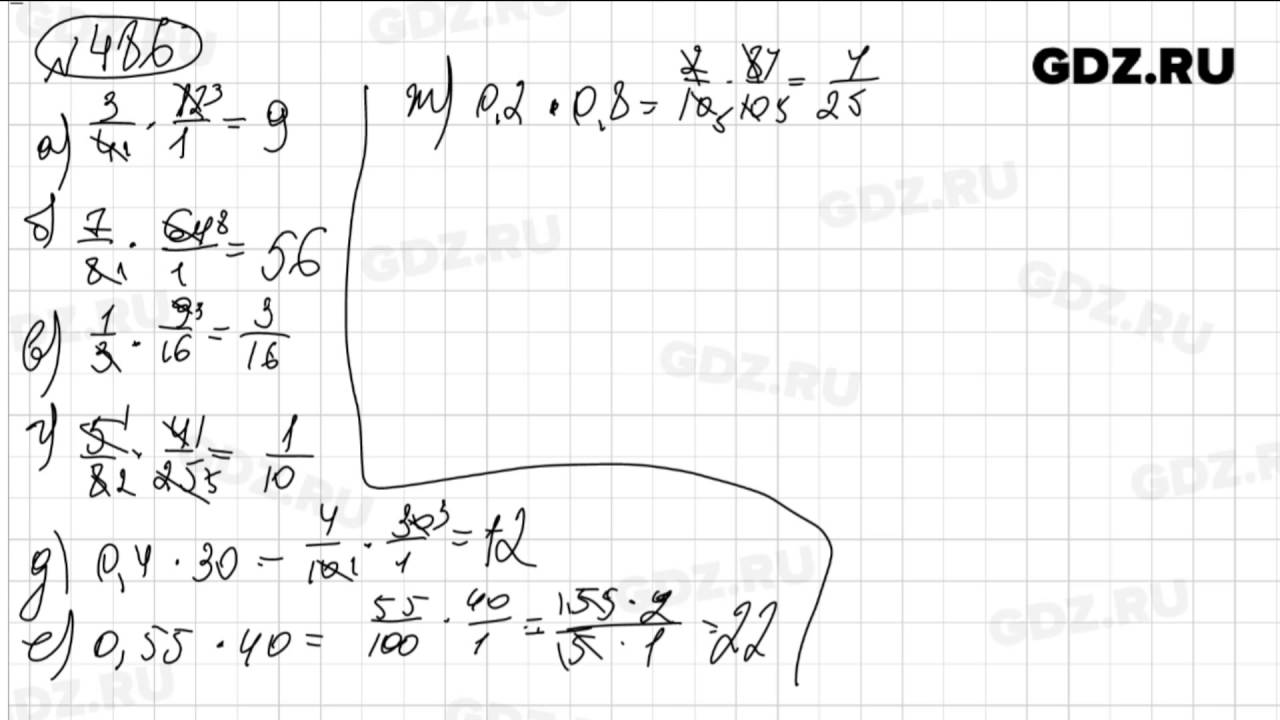 № 486
GDZ.RU
а) 3/4 1 · 12 3/1 = 9
б) 7/8 1 · 64 8/1 = 56
в) 1/3 · 9 3/16 = 3/16
г) 5 1/8 2 · 4 1/25 5 = 1/10
д) 0,4 · 30 = 4/10 1 · 30 3/1 = 12
е) 0,55 · 40 = 55/100 · 40/1 = 55 · 2/5 · 1 = 22
ж) 0,2 · 0,8 = 2/10 5 · 8 4/10 5 = 4/25